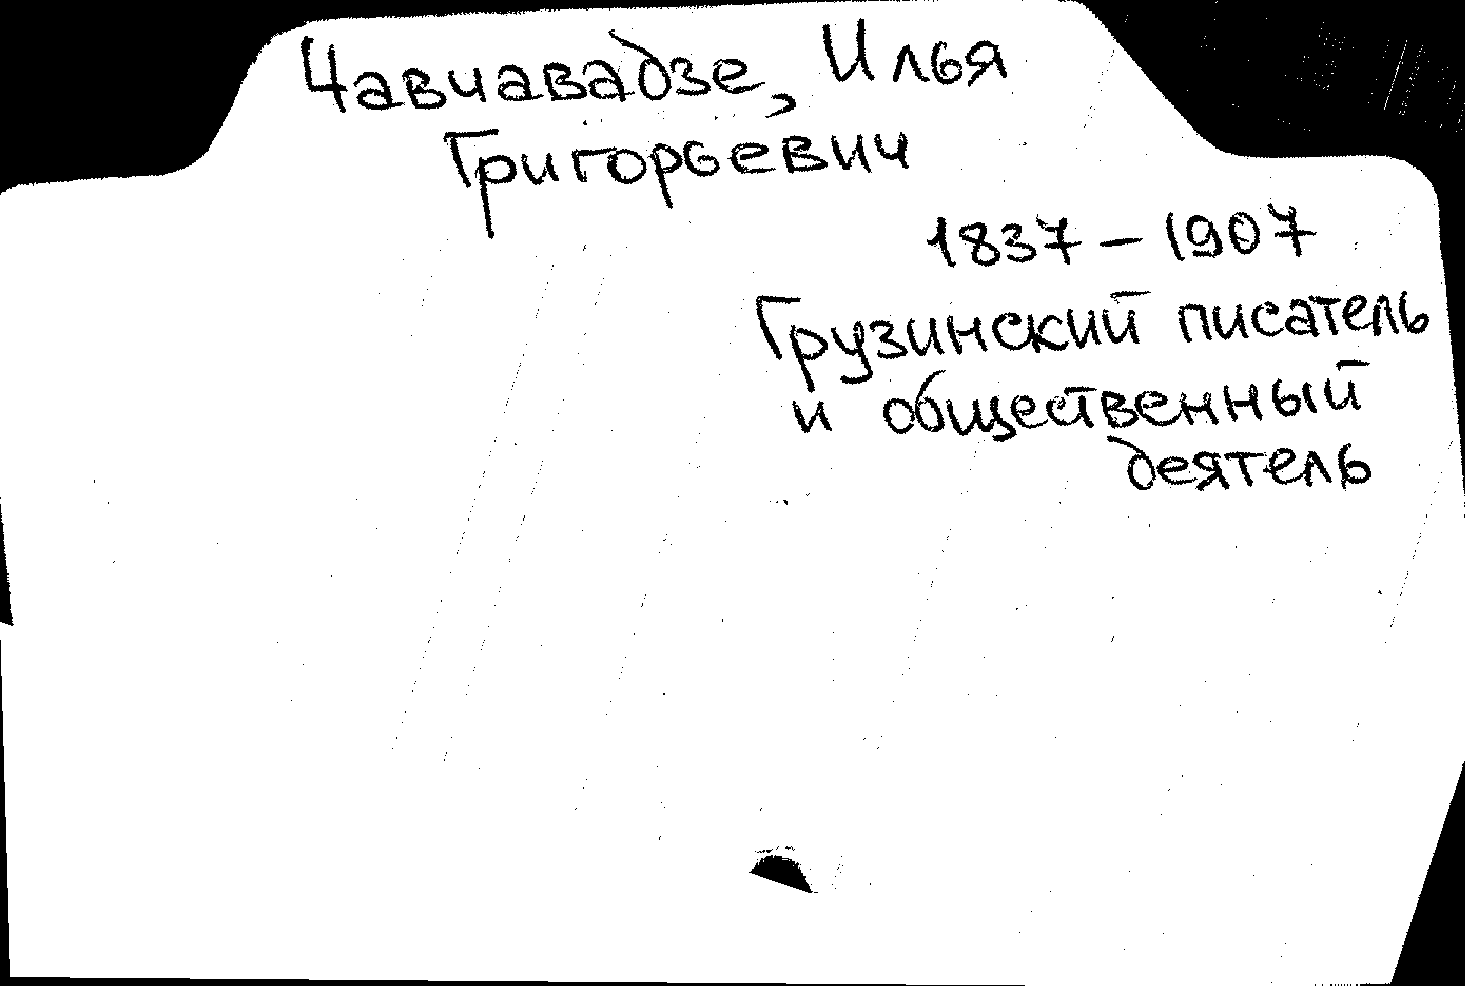 Чавчавадзе, Илья
Григорьевич
1837 – 1907
Грузинский писатель
и общественный
деятель